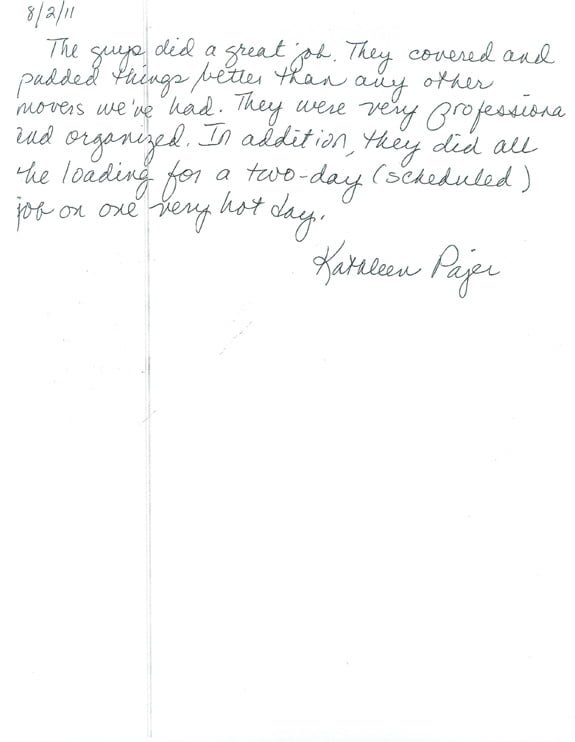 8/2/11
The guys did a great job. They covered and
padded things better than any other
movers we've had. They were very professiona
and organized. In addition, they did all
he loading for a two-day (scheduled)
job on one very hot day.
Kathleen Pajer